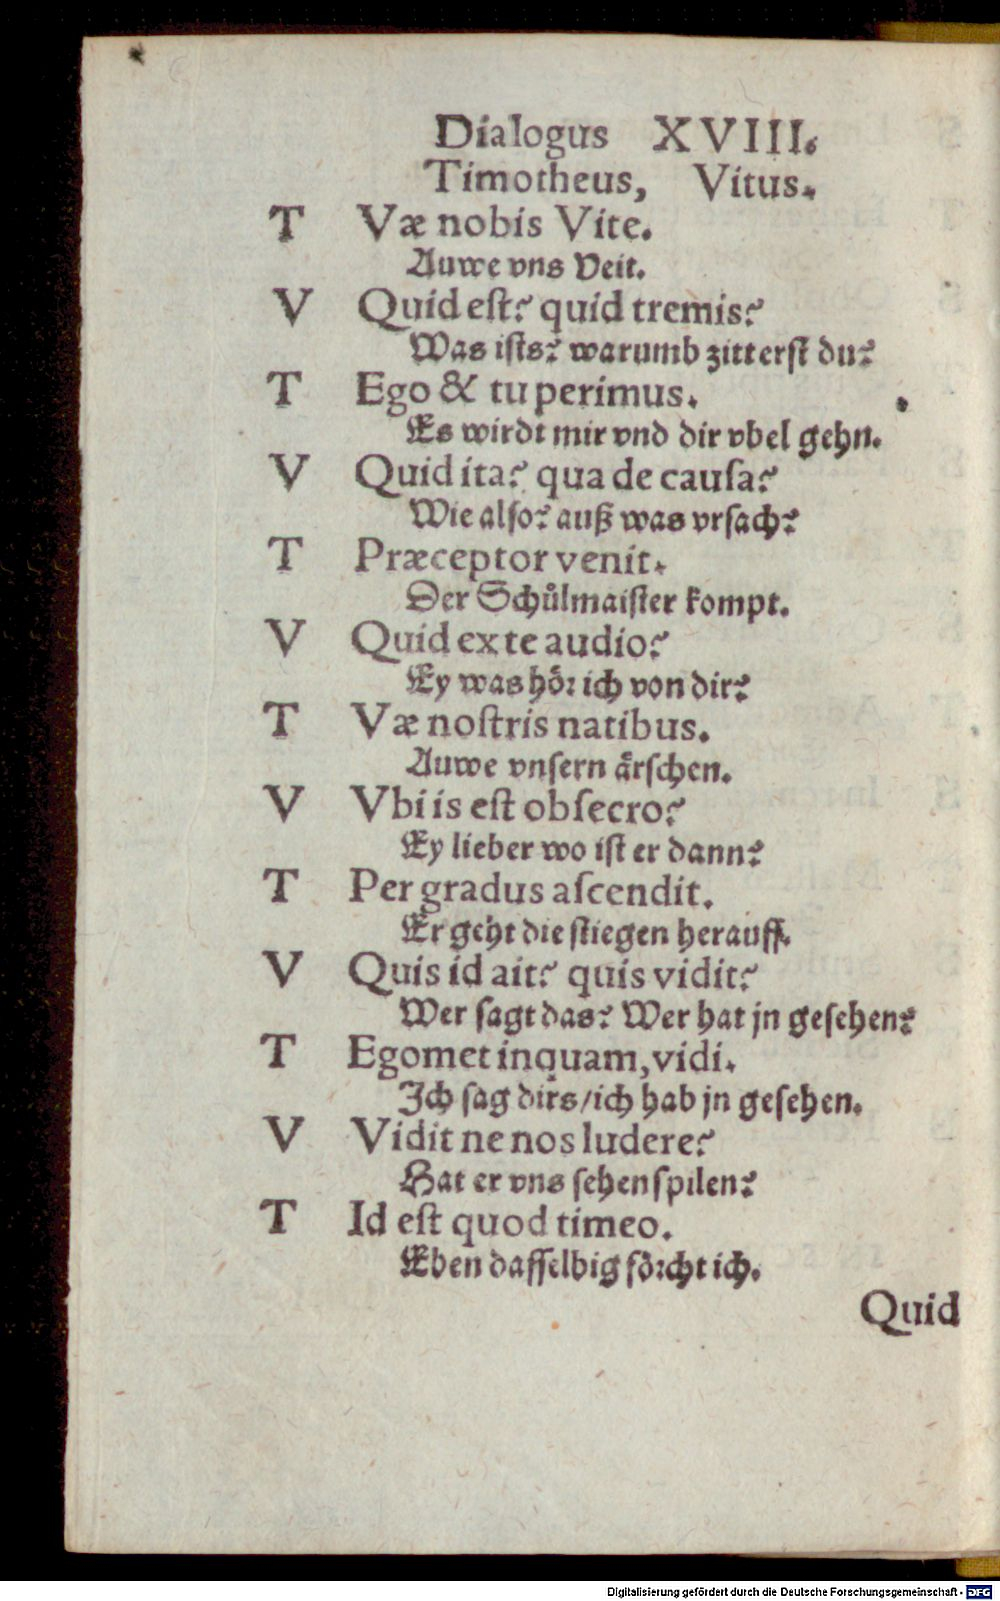 Dialogus XVIII.
Timotheus, Vitus.
T Væ nobis Vite.
Auwe vns Veit.
V Quid eſt? quid tremis?
Was iſts? warumb zitterſt du?
T Ego & tu perimus.
Es wirdt mir vnd dir vbel gehn.
V Quid ita? qua de cauſa?
Wie alſo? auß was vrſach?
T Præceptor venit.
Der Schůlmaiſter kompt.
V Quid ex te audio?
Ey was hoͤr ich von dir?
T Væ noſtris natibus.
Auwe vnſern aͤrſchen.
V Vbi is eſt obſecro?
Ey lieber wo iſt er dann?
T Per gradus aſcendit.
Er geht die ſtiegen herauff.
V Quis id ait? quis vidit?
Wer ſagt das? Wer hat jn geſehen?
T Egomet inquam, vidi.
Ich ſag dirs/ich hab jn geſehen.
V Vidit ne nos ludere?
Hat er vns ſehen ſpilen?
T Id eſt quod timeo.
Eben daſſelbig foͤrcht ich.
Quid
Digitalisierung gefördert durch die Deutsche Forschungsgemeinschaft - DFG